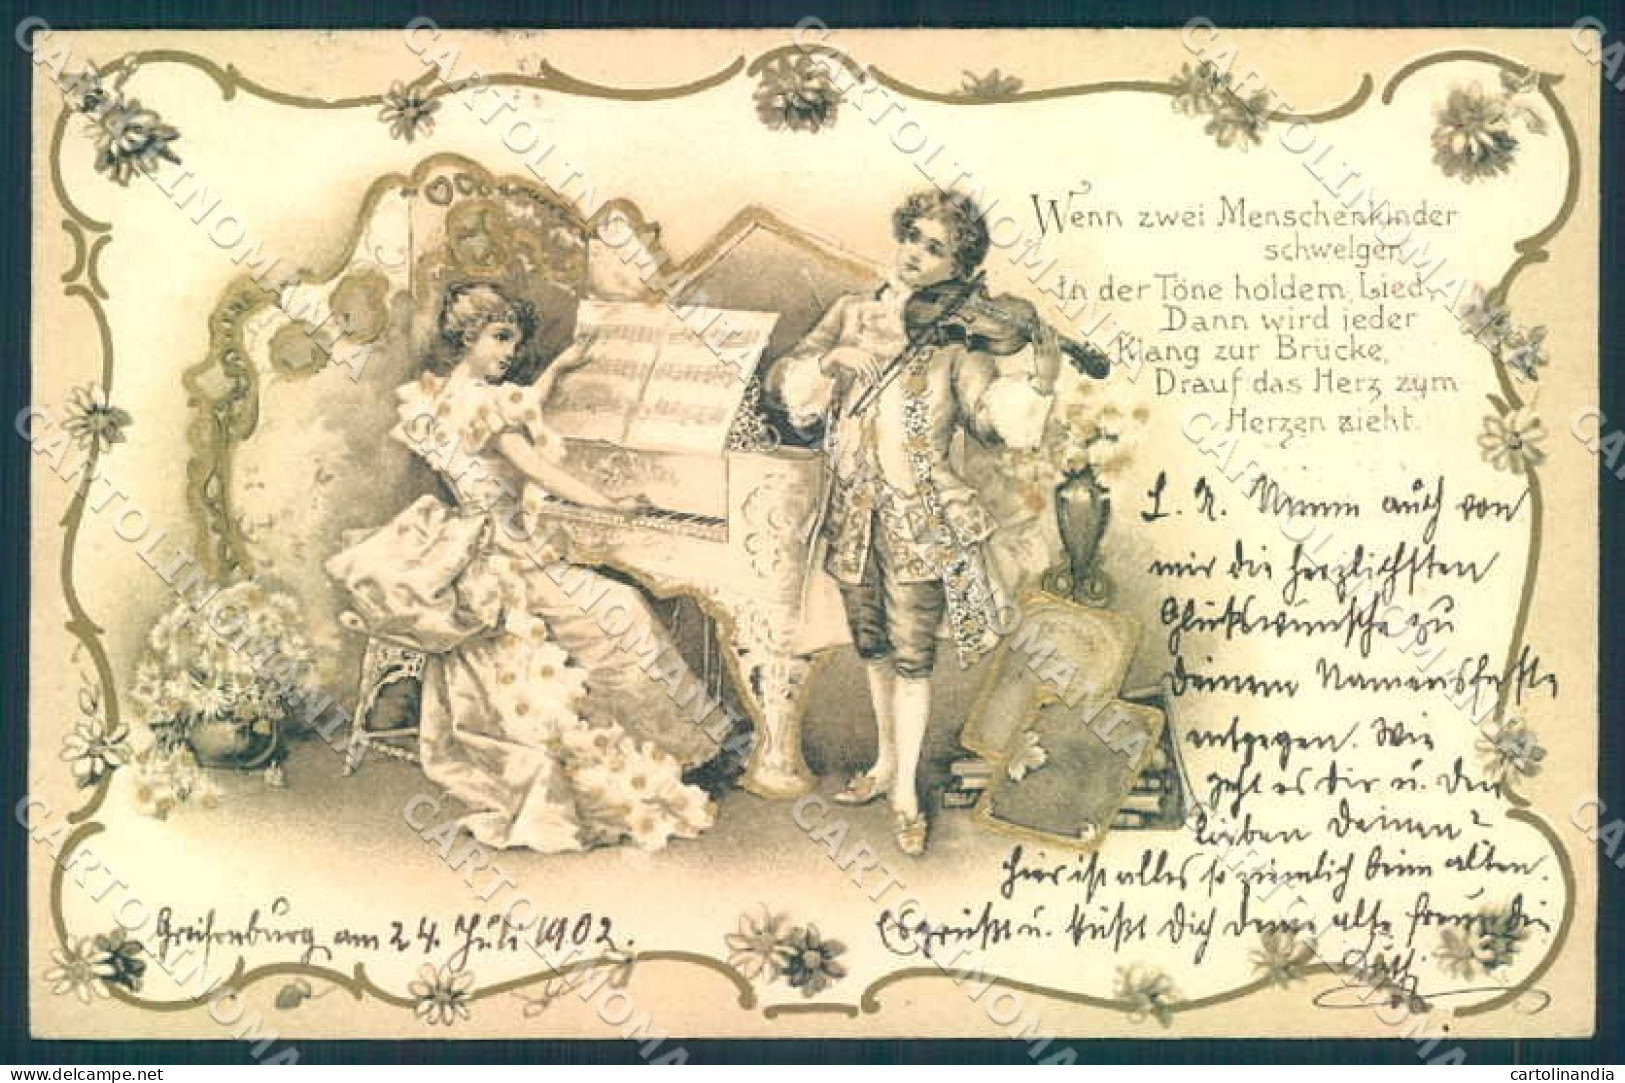 Wenn zwei Menschenkinder
schwelgen
In der Töne holdem Lied,
Dann wird jeder
Klang zur Brücke,
Drauf das Herz zum
Herzen zieht.
L. N. Nimm auch von
mir die herzlichsten
Glückwünsche zu
Deinem Namensfeste
entgegen. Wie
geht es Dir u. den
lieben Deinen?
Hier ist alles so ziemlich beim alten.
Es grüßt u. küßt Dich Deine alte Freundin
Greifenburg am 24. Juli 1902.
CARTOLINOMANIA
delcampe.net
cartolinandia